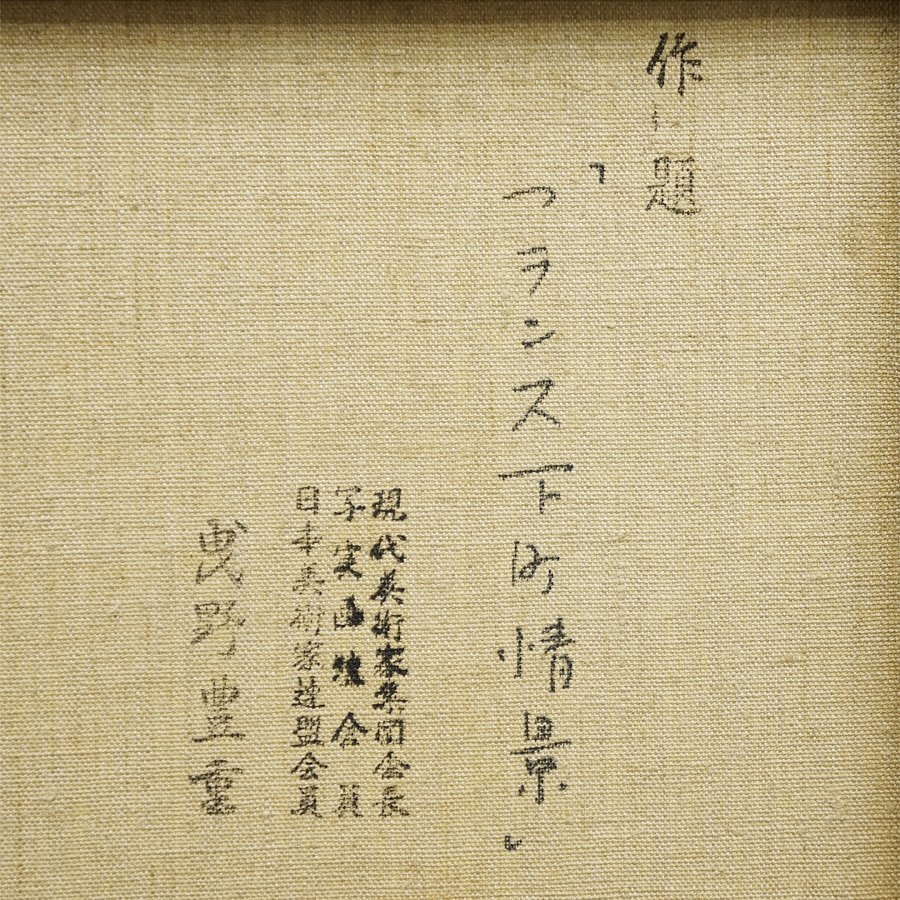 作題
「フランス下町情景」
現代美術家集団会長
写実画壇会員
日本美術家連盟会員
曵野豊重